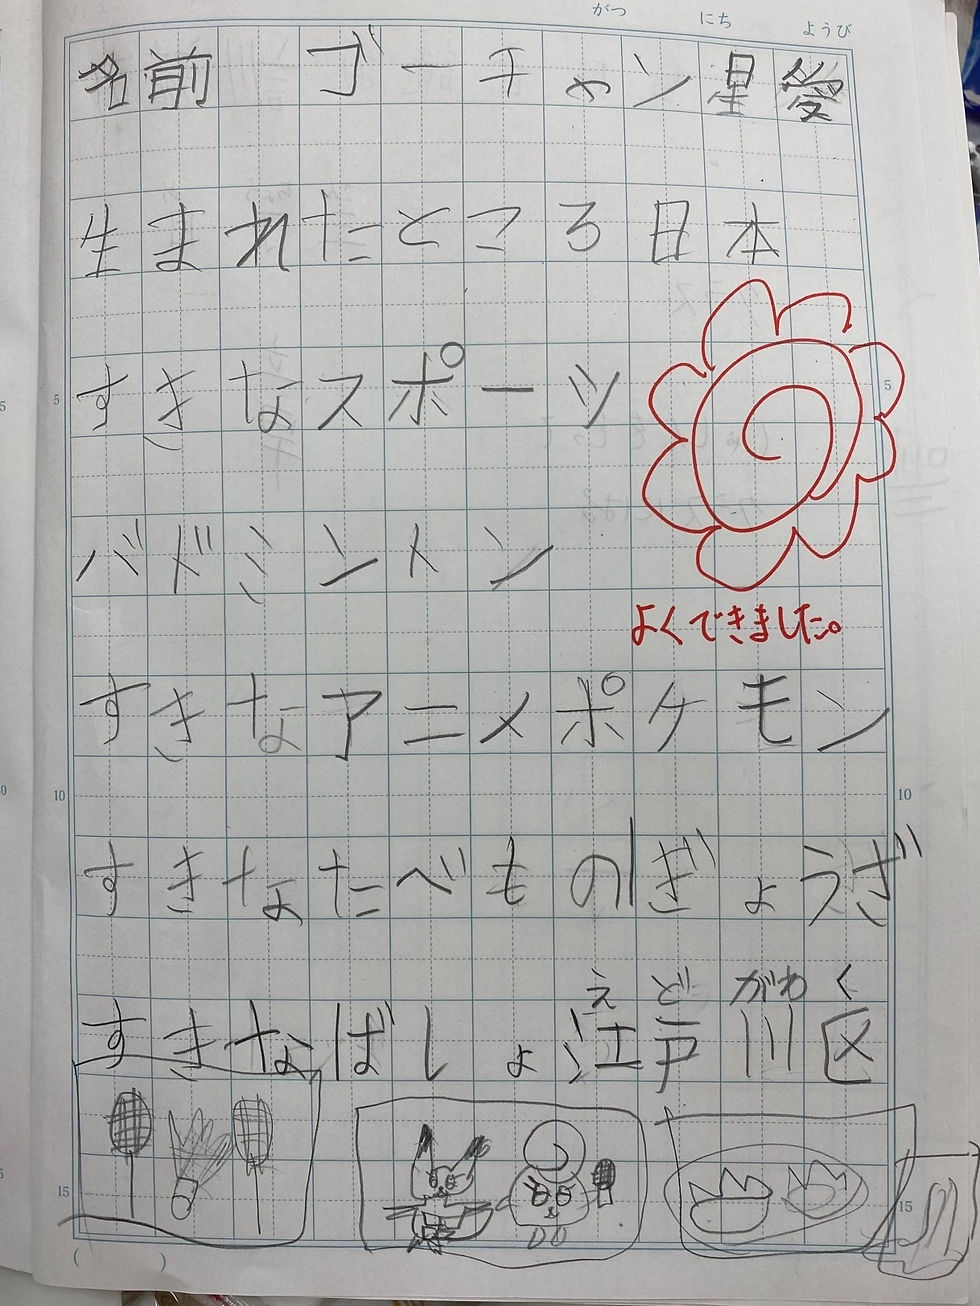 がつ にち ようび
名前 ゴーチャン星愛
生まれたところ日本
すきなスポーツ
5
5
バドミントン
よくできました。
すきなアニメポケモン
10
10
すきなたべものぎょうざ
えどがわく
すきなばしょ江戸川区
15
15